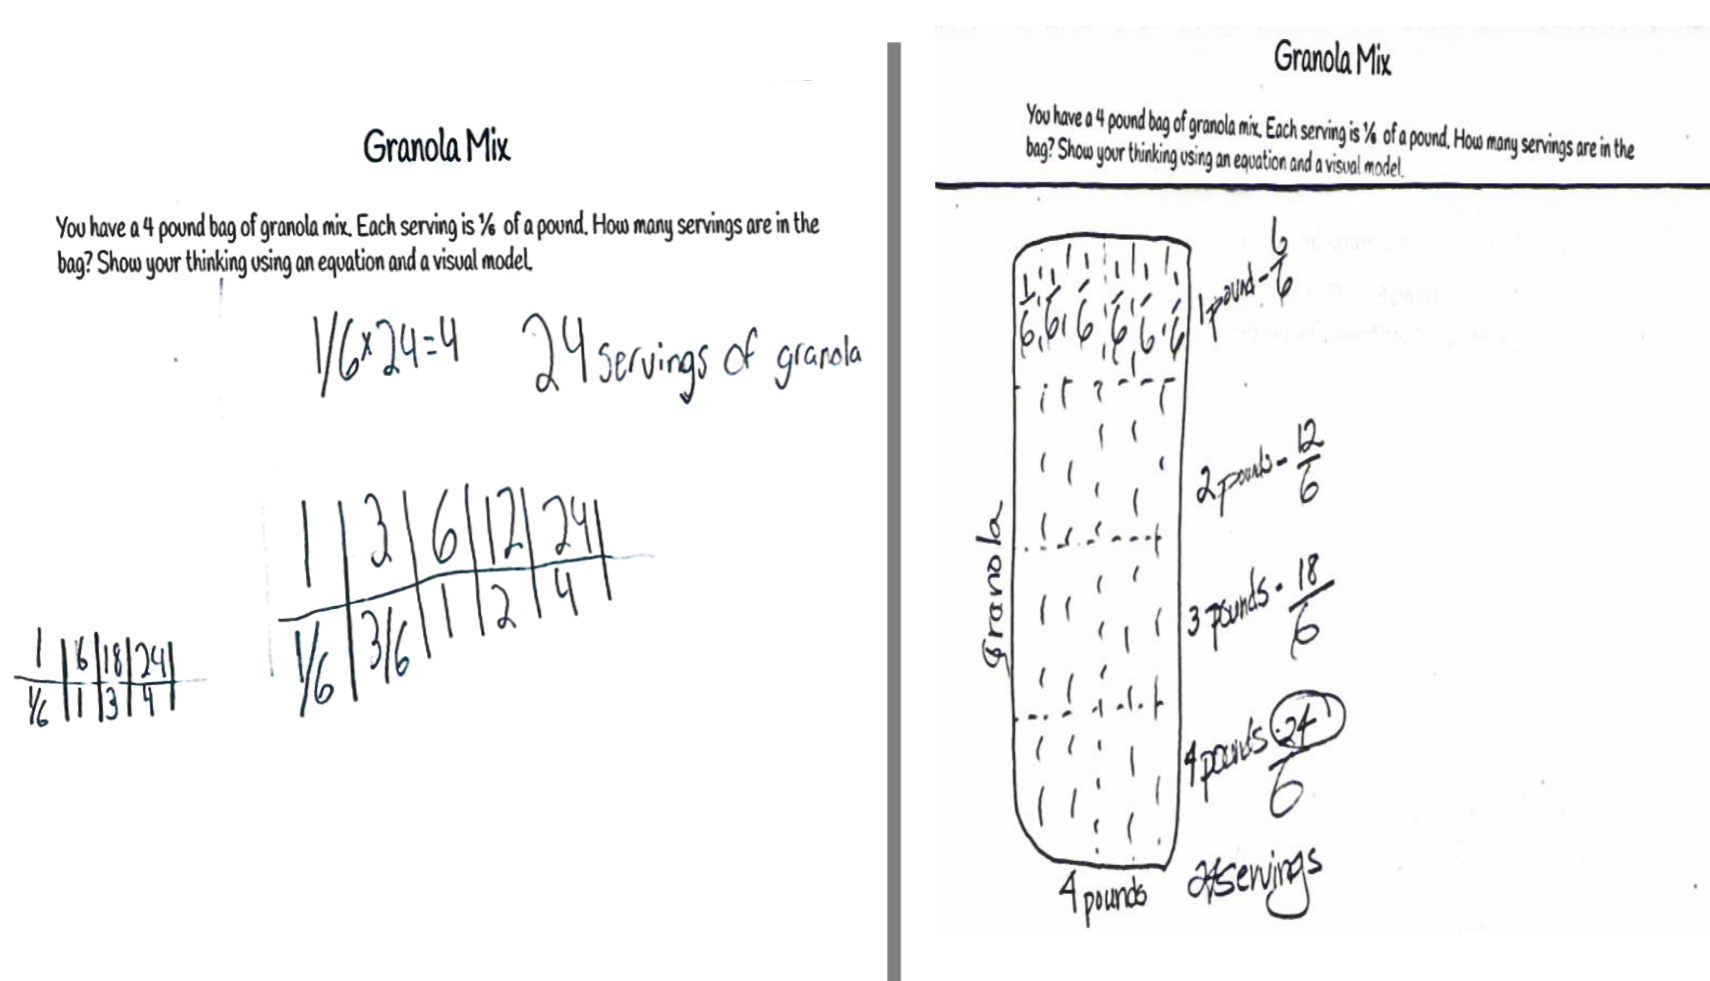 Granola Mix
You have a 4 pound bag of granola mix. Each serving is ⅙ of a pound. How many servings are in the
bag? Show your thinking using an equation and a visual model.
1/6 x 24 = 4
24 servings of granola
1 3 6 12 24
1/6 3/6 1 2 4
1 6 18 24
1/6 1 3 4
Granola Mix
You have a 4 pound bag of granola mix. Each serving is ⅙ of a pound. How many servings are in the
bag? Show your thinking using an equation and a visual model.
1/6 1/6 1/6 1/6 1/6 1/6
1 pound - 6/6
2 pounds - 12/6
granola
3 pounds - 18/6
4 pounds - 24/6
4 pounds
24 servings